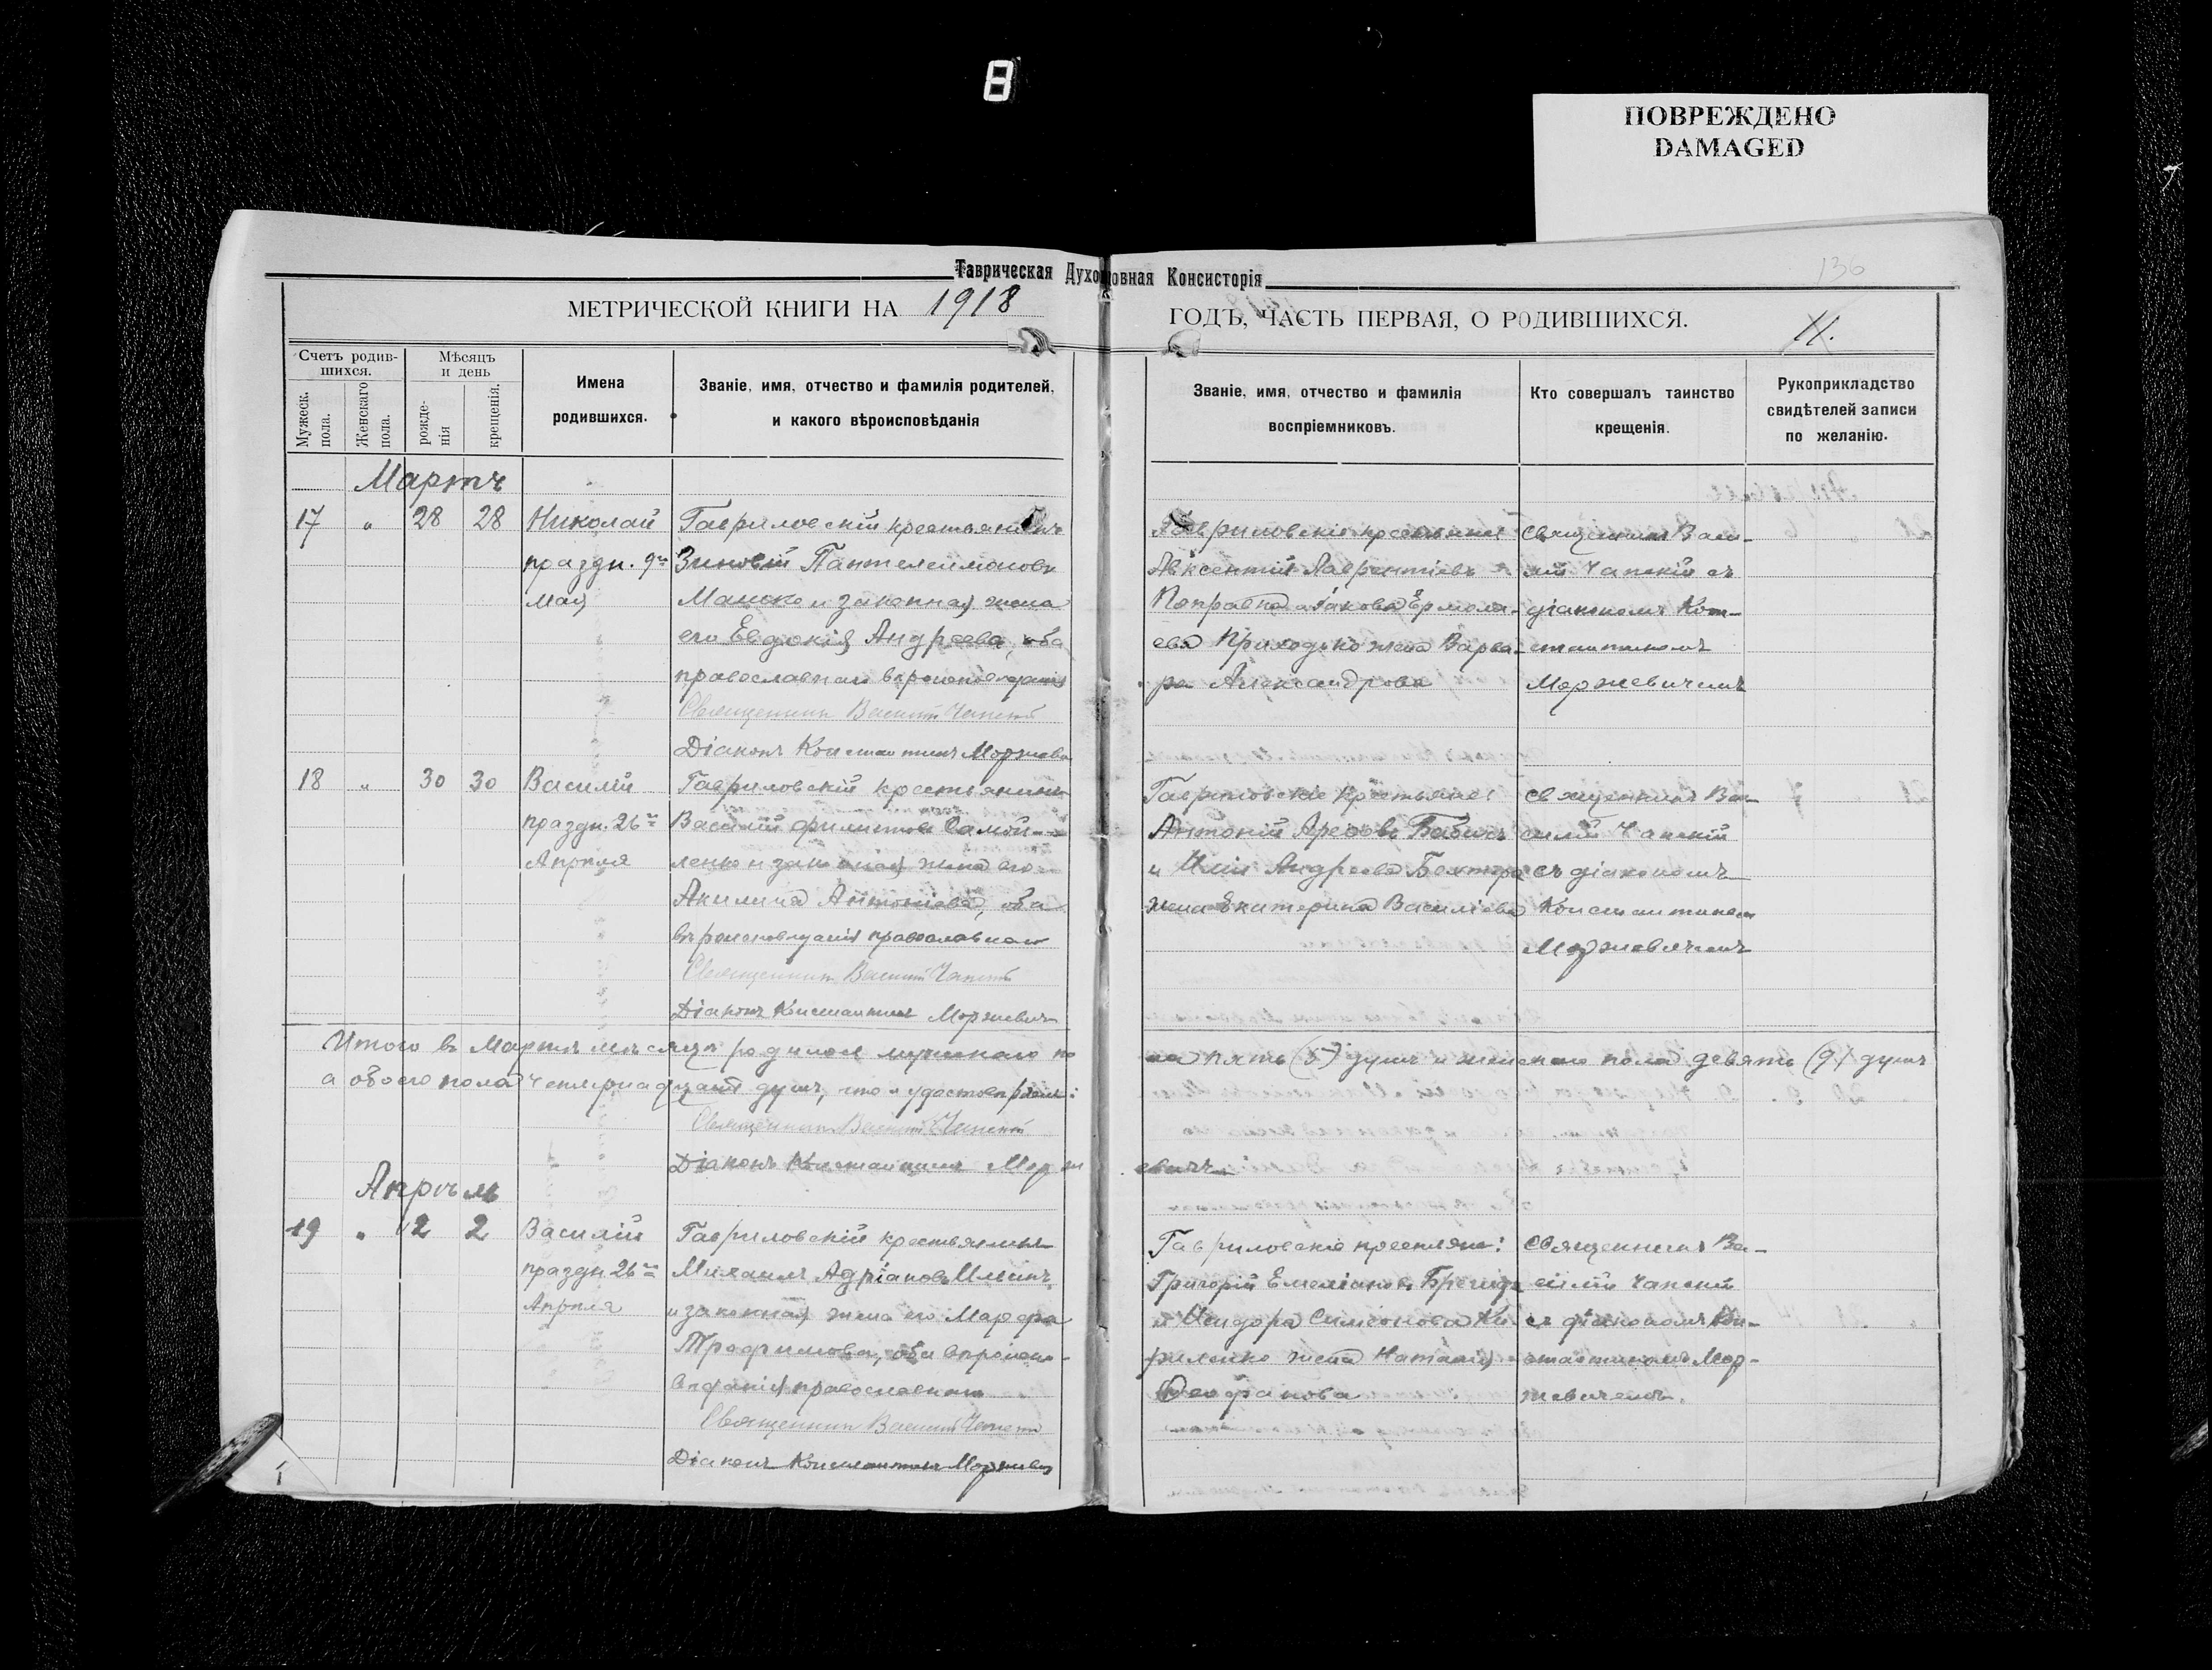 8
ПОВРЕЖДЕНО
DAMAGED
Таврическая Духовная Консисторія
136
МЕТРИЧЕСКОЙ КНИГИ НА 1918 ГОДЪ, ЧАСТЬ ПЕРВАЯ, О РОДИВШИХСЯ.
11.
Счетъ родив-
шихся.
Мужеск. пола.
Женскаго пола.
Мѣсяцъ
и день
рожде-
нія
крещенія.
Имена
родившихся.
Званіе, имя, отчество и фамилія родителей,
и какого вѣроисповѣданія
Званіе, имя, отчество и фамилія
воспріемниковъ.
Кто совершалъ таинство
крещенія.
Рукоприкладство
свидѣтелей записи
по желанію.
Мартъ
17 " 28 28
Николай
праздн. 9го
Мая
Гавриловскій крестьянинъ
Зиновій Пантелеимоновъ
и законная жена
его Евдокія Андреева, оба
православнаго вѣроисповѣданія
Священникъ Василій Чапскій
Діаконъ Константинъ Моржевич
Гавриловскіе крестьяне
Авксентій Лаврентіевъ
Поправка и Іакова Ермола-
ева Приходько жена Варва-
ра Александрова
Священникъ Васи-
лій Чапскій съ
діакономъ Кон-
стантиномъ
Моржевичемъ
18 " 30 30
Василій
праздн. 26го
Апрѣля
Гавриловскій крестьянинъ
Василій Филиповъ Самой-
ленко и законная жена его
Акилина Антоніева, оба
вѣроисповѣданія православнаго
Священникъ Василій Чапскій
Діаконъ Константинъ Моржевич
Гавриловскіе крестьяне
Антоній Арефовъ
и Иліи Андреева Бехтера
жена Екатерина Василіева
Священникъ Ва-
силій Чапскій
съ діакономъ
Константиномъ
Моржевичемъ
Итого въ Мартѣ мѣсяцѣ родилося мужескаго по ла пять (5) душъ и женскаго пола девять (9) душъ
а обоего пола четырнадцать душъ, что и удостовѣряемъ:
Священникъ Василій Чапскій
Діаконъ Константинъ Морж евичъ
Апрѣль
19 " 2 2
Василій
праздн. 26го
Апрѣля
Гавриловскій крестьянинъ
Михаилъ Адріановъ Ильинъ
и законная жена его Марфа
Трофимова, оба вѣроиспо-
вѣданія православнаго
Священникъ Василій Чапскій
Діаконъ Константинъ Моржевич
Гавриловскіе крестьяне:
Григорій Емеліановъ
и Исидора Симеонова Ки-
риленко жена Наталія
Феофанова
Священникъ Ва-
силій Чапскій
съ діакономъ Кон-
стантиномъ Мор-
жевичемъ.